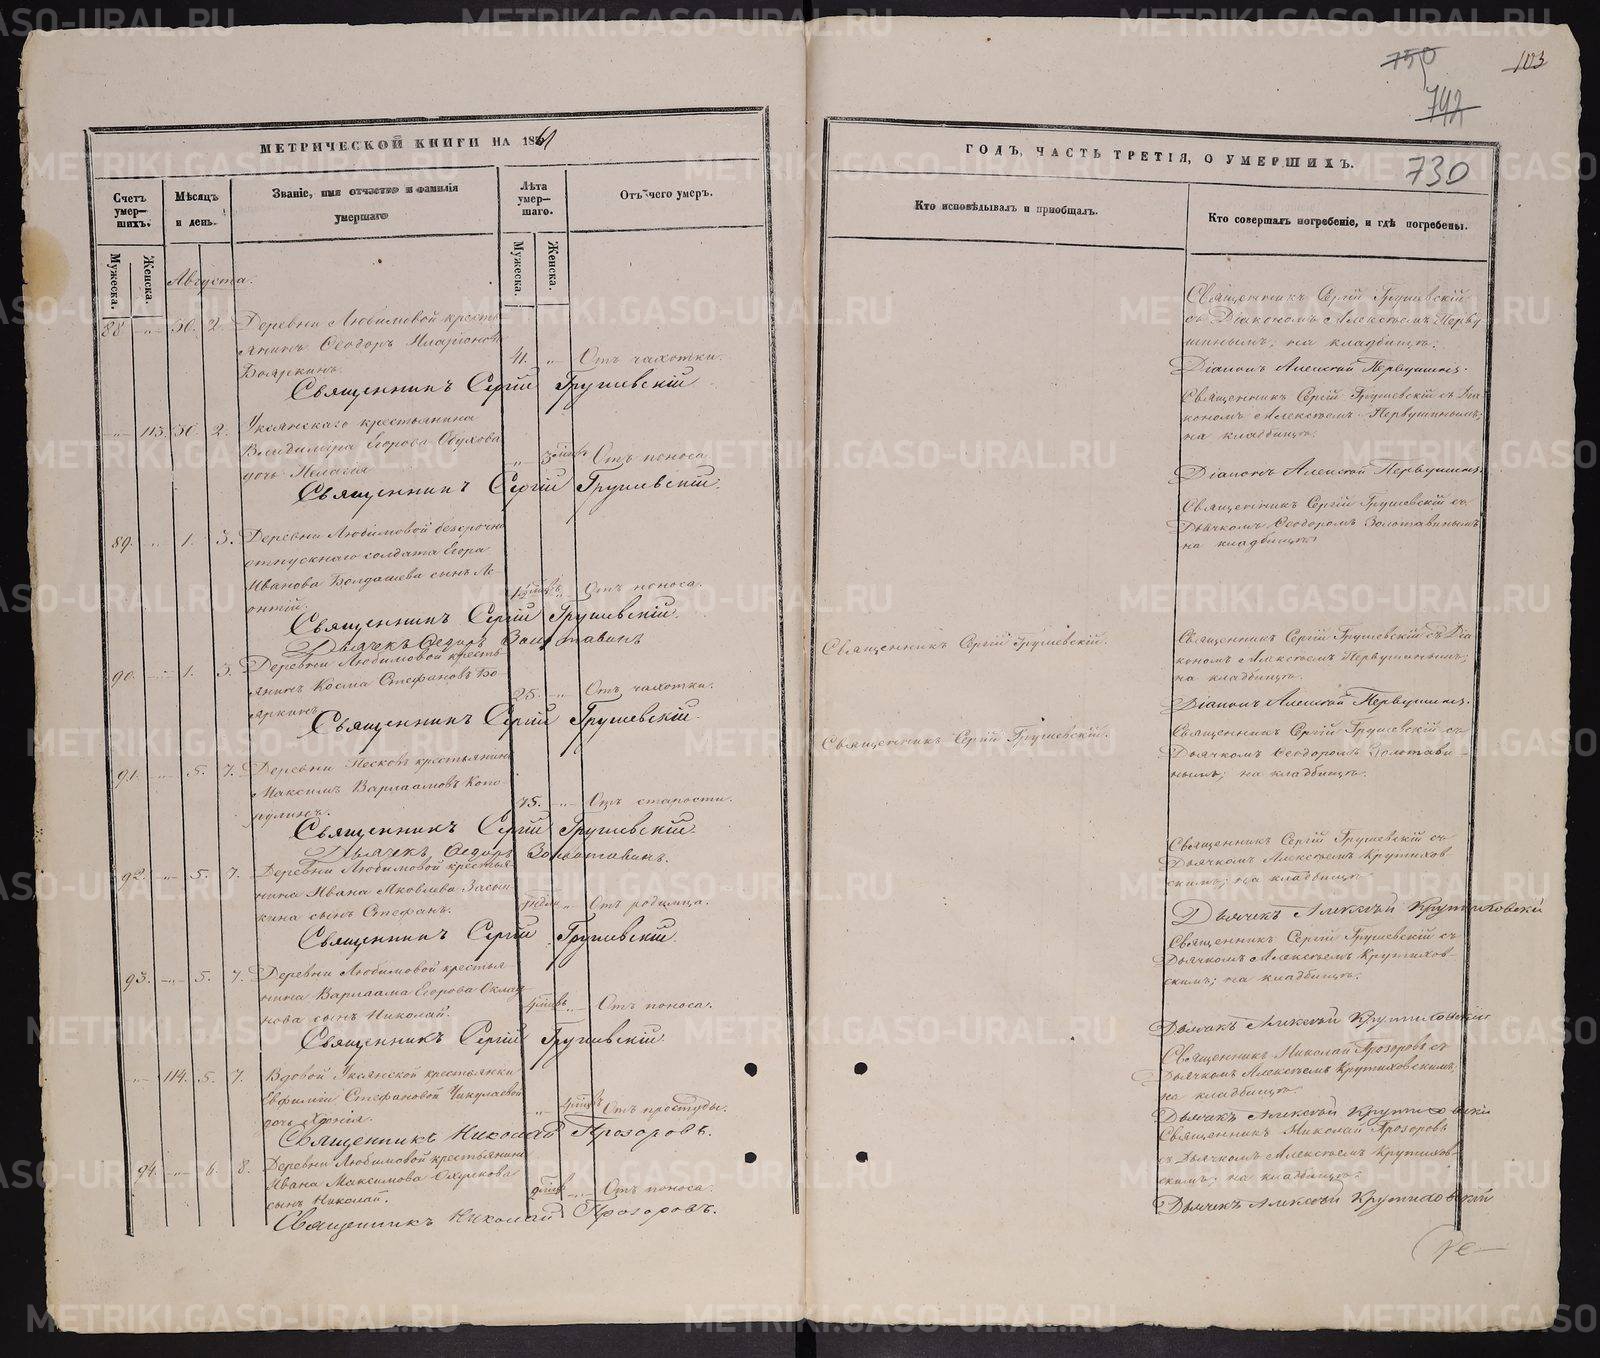 103
750
742
730
МЕТРИЧЕСКОЙ КНИГИ НА 1861
Счетъ умер-шихъ.
Мѣсяцъ и день.
Званіе, имя отчество и фамилія умершаго
Лѣта умер-шаго.
Отъ чего умеръ.
Мужеска.
Женска.
Мужеска.
Женска.
Августа.
88 „ 30. 2. Деревни Любимовой кресть-
янинъ Ѳеодоръ Иларіоновъ
Бояркинъ.
41. „ Отъ чахотки.
Священникъ Сергій Грушевскій
„ 113. 30. 2. Уксянскаго крестьянина
Владиміра Егорова Обухова
дочь Пелагія
Отъ поноса
Священникъ Сергій Грушевскій.
89. „ 1. 3. Деревни Любимовой безсрочно
отпускнаго солдата Егора
Иванова Болдашева сынъ Ле-
онтій.
Отъ поноса.
Священникъ Сергій Грушевскій.
Дьячекъ Ѳедоръ Золотавинъ
90. „ 1. 3. Деревни Любимовой кресть-
янинъ Косма Стефановъ Бо-
яркинъ
25. „ Отъ чахотки.
Священникъ Сергій Грушевскій
91. „ 5. 7. Деревни Песковъ крестьянинъ
Максимъ Варлаамовъ
75. „ Отъ старости.
Священникъ Сергій Грушевскій.
Дьячекъ Ѳедоръ Золотавинъ.
92. „ 5. 7. Деревни Любимовой крестья-
нина Ивана Яковлева Засып-
кина сынъ Стефанъ.
Отъ родимца.
Священникъ Сергій Грушевскій.
93. „ 5. 7. Деревни Любимовой крестья-
нина Варлаама Егорова
сынъ Николай.
Отъ поноса.
Священникъ Сергій Грушевскій.
„ 114. 5. 7. Вдовой Уксянской крестьянки
Евфиміи Стефановой Чикулаевой
дочь
Отъ простуды.
Священникъ Николай Прозоровъ.
94. „ 6. 8. Деревни Любимовой крестьянина
Ивана Максимова
сынъ Николай.
Отъ поноса.
Священникъ Николай Прозоровъ.
ГОДЪ, ЧАСТЬ ТРЕТІЯ, О УМЕРШИХЪ.
Кто исповѣдывалъ и пріобщалъ.
Кто совершалъ погребеніе, и гдѣ погребены.
Священникъ Сергій Грушевскій
съ Діакономъ Алексѣемъ Перву-
шинымъ, на кладбищѣ.
Діаконъ Алексѣй Первушинъ.
Священникъ Сергій Грушевскій съ Діа-
кономъ Алексѣемъ Первушинымъ;
на кладбищѣ.
Діаконъ Алексѣй Первушинъ.
Священникъ Сергій Грушевскій съ
Дьячкомъ Ѳеодоромъ Золотавинымъ
на кладбищѣ
Священникъ Сергій Грушевскій.
Священникъ Сергій Грушевскій съ Діа-
кономъ Алексѣемъ Первушинымъ;
на кладбищѣ.
Діаконъ Алексѣй Первушинъ.
Священникъ Сергій Грушевскій.
Священникъ Сергій Грушевскій съ
Дьячкомъ Ѳеодоромъ Золотави-
нымъ; на кладбищѣ.
Священникъ Сергій Грушевскій съ
Дьячкомъ Алексѣемъ Крутихов-
скимъ; на кладбищѣ
Дьячекъ Алексѣй Крутиховскій
Священникъ Сергій Грушевскій съ
Дьячкомъ Алексѣемъ Крутихов-
скимъ; на кладбищѣ.
Дьячекъ Алексѣй Крутиховскій
Священникъ Николай Прозоровъ съ
Дьячкомъ Алексѣемъ Крутиховскимъ,
на кладбищѣ.
Дьячекъ Алексѣй Крутиховскій
Священникъ Николай Прозоровъ
съ Дьячкомъ Алексѣемъ Крутихов-
скимъ; на кладбищѣ.
Дьячекъ Алексѣй Крутиховскій
METRIKI.GASO-URAL.RU